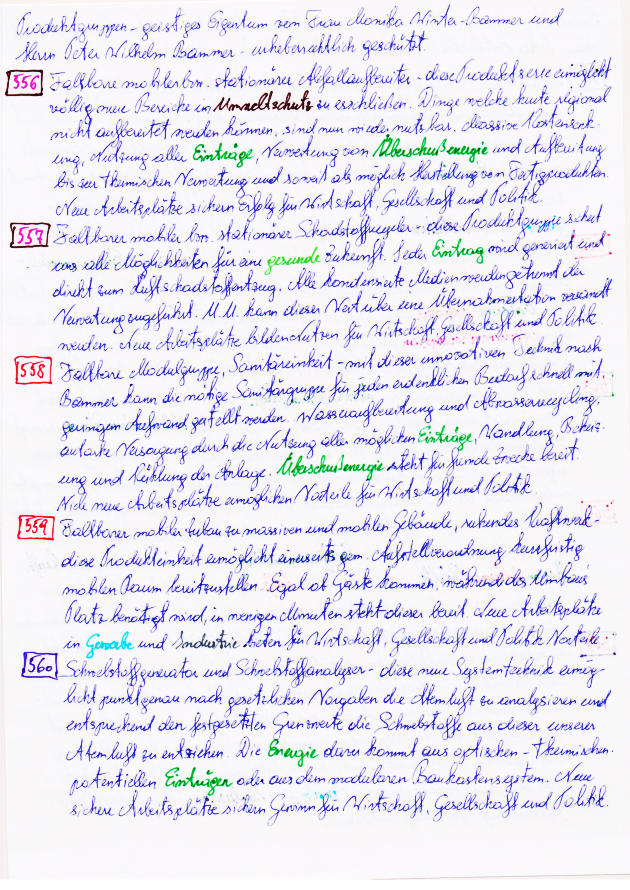 Produktgruppen - geistiges Eigentum von Frau Monika Winter-Bammer und
Herrn Peter Wilhelm Bammer - urheberrechtlich geschützt.
556 Faltbare mobiler bzw. stationärer Abfallaufbereiter - diese Produktserie ermöglicht
völlig neue Bereiche im Umweltschutz zu erschließen. Dinge welche heute regional
nicht aufbereitet werden können, sind nun wieder nutzbar. Massive Kostensenk-
ung, Nutzung aller Einträge, Verwertung von Überschußenergie und Aufbereitung
bis zur thermischen Verwertung und soweit als möglich Herstellung von Fertigprodukten.
Neue Arbeitsplätze sichern Erfolg für Wirtschaft, Gesellschaft und Politik.
557 Faltbarer mobiler bzw. stationärer Schadstoffrecycler - diese Produktgruppe sichert
uns alle Möglichkeiten für eine gesunde Zukunft. Jeder Eintrag wird generiert und
direkt zum Luftschadstoffentzug. Alle kondensierte Medien werden getrennt der
Verwertung zugeführt. U.U. kann dieser Wert über eine Übernahmestation versandt
werden. Neue Arbeitsplätze bilden Nutzen für Wirtschaft, Gesellschaft und Politik
558 Faltbare Modulgruppe, Sanitäreinheit - mit dieser innovativen Technik nach
Bammer kann die nötige Sanitärgruppe für jeden erdenklichen Bedarf schnell mit
geringem Aufwand gestellt werden. Wasseraufbereitung und Abwasserrecycling,
autarke Versorgung durch die Nutzung aller möglichen Einträge, Wandlung, Beheiz-
ung und Kühlung der Anlage. Überschußenergie steht für fremde Zwecke bereit.
Viele neue Arbeitsplätze ermöglichen Vorteile für Wirtschaft und Politik
559 Faltbarer mobiler Zubau zu massiven und mobilen Gebäude, ruhendes Kraftwerk -
diese Produkteinheit ermöglicht einerseits gem. Aufstellverordnung kurzfristig
mobilen Raum bereitzustellen. Egal ob Gäste kommen, während des Umbaus
Platz benötigt wird, in wenigen Minuten steht dieser bereit. Neue Arbeitsplätze
in Gewerbe und Industrie bieten für Wirtschaft, Gesellschaft und Politik Vorteile
560 Schwebstoffgenerator und Schwebstoffanalyser - diese neue Systemtechnik ermög-
licht punktgenau nach gesetzlichen Vorgaben die Atemluft zu analysieren und
entsprechend den festgesetzten Grenzwerte die Schwebstoffe aus dieser unserer
Atemluft zu entziehen. Die Energie dazu kommt aus optischen - thermischen -
potentiellen Einträgen oder aus dem modularen Baukastensystem. Neue
sichere Arbeitsplätze sichern Gewinn für Wirtschaft, Gesellschaft und Politik.